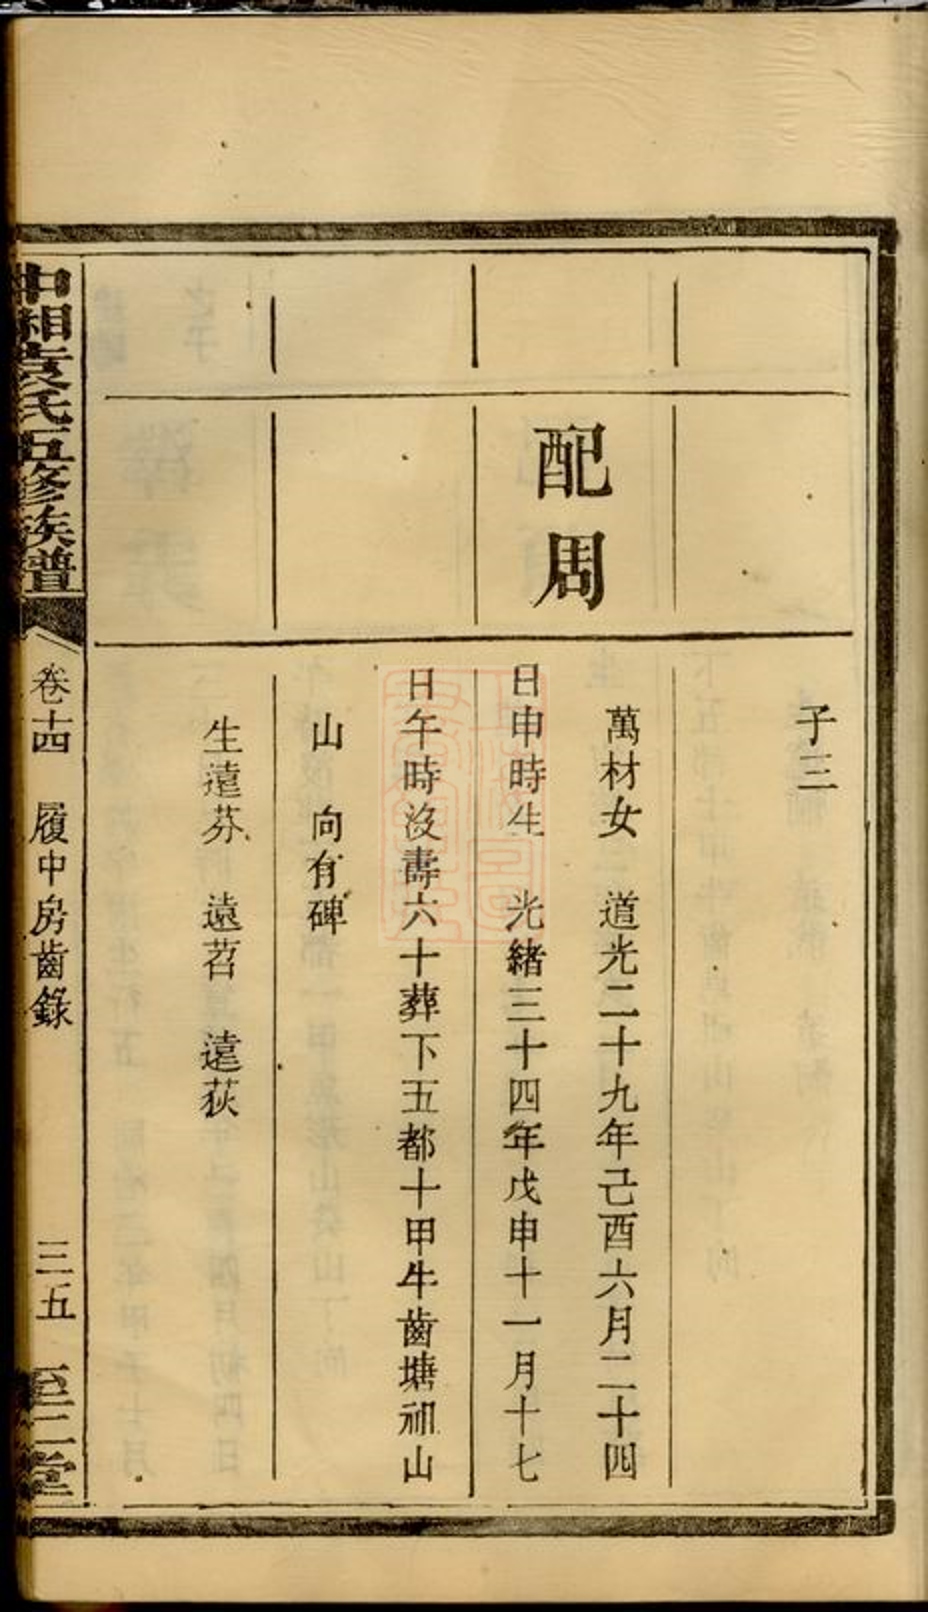 子三
配周
萬材女 道光二十九年己酉六月二十四
日申時生 光緒三十四年戊申十一月十七
日午時沒壽六十葬下五都十甲牛齒塘祖山
山 向有碑
生遠芬 遠苕 遠荻
中湘袁氏五修族譜
卷十四 履中房齒錄
三五 至二堂